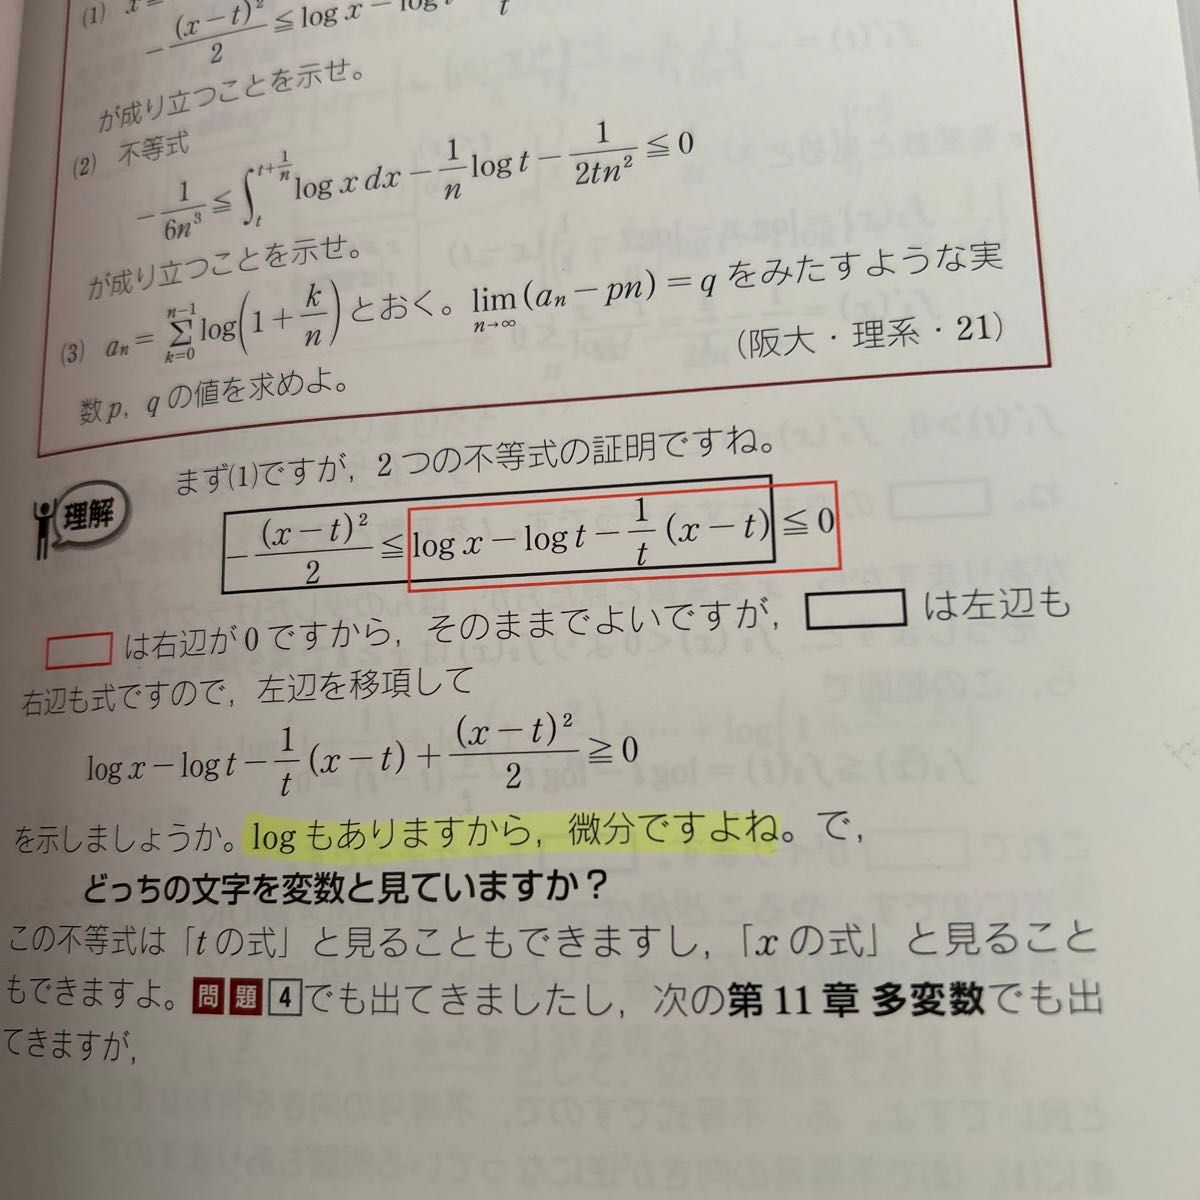 (1) x
-(x-t)²/2 ≦ log x - log t
が成り立つことを示せ。
(2) 不等式
-1/(6n³) ≦ ∫_t^{t+1/n} log x dx - (1/n) log t - 1/(2tn²) ≦ 0
が成り立つことを示せ。
(3) aₙ = Σ_{k=0}^{n-1} log(1+k/n) とおく。lim_{n→∞}(aₙ-pn)=q をみたすような実
数p, qの値を求めよ。 (阪大・理系・21)
まず(1)ですが,2つの不等式の証明ですね。
理解
-(x-t)²/2 ≦ log x - log t - (1/t)(x-t) ≦ 0
は右辺が0ですから,そのままでよいですが, は左辺も
右辺も式ですので,左辺を移項して
log x - log t - (1/t)(x-t) + (x-t)²/2 ≧ 0
を示しましょうか。logもありますから,微分ですよね。で,
どっちの文字を変数と見ていますか?
この不等式は「tの式」と見ることもできますし,「xの式」と見ること
もできますよ。問題4でも出てきましたし,次の第11章 多変数でも出
てきますが,